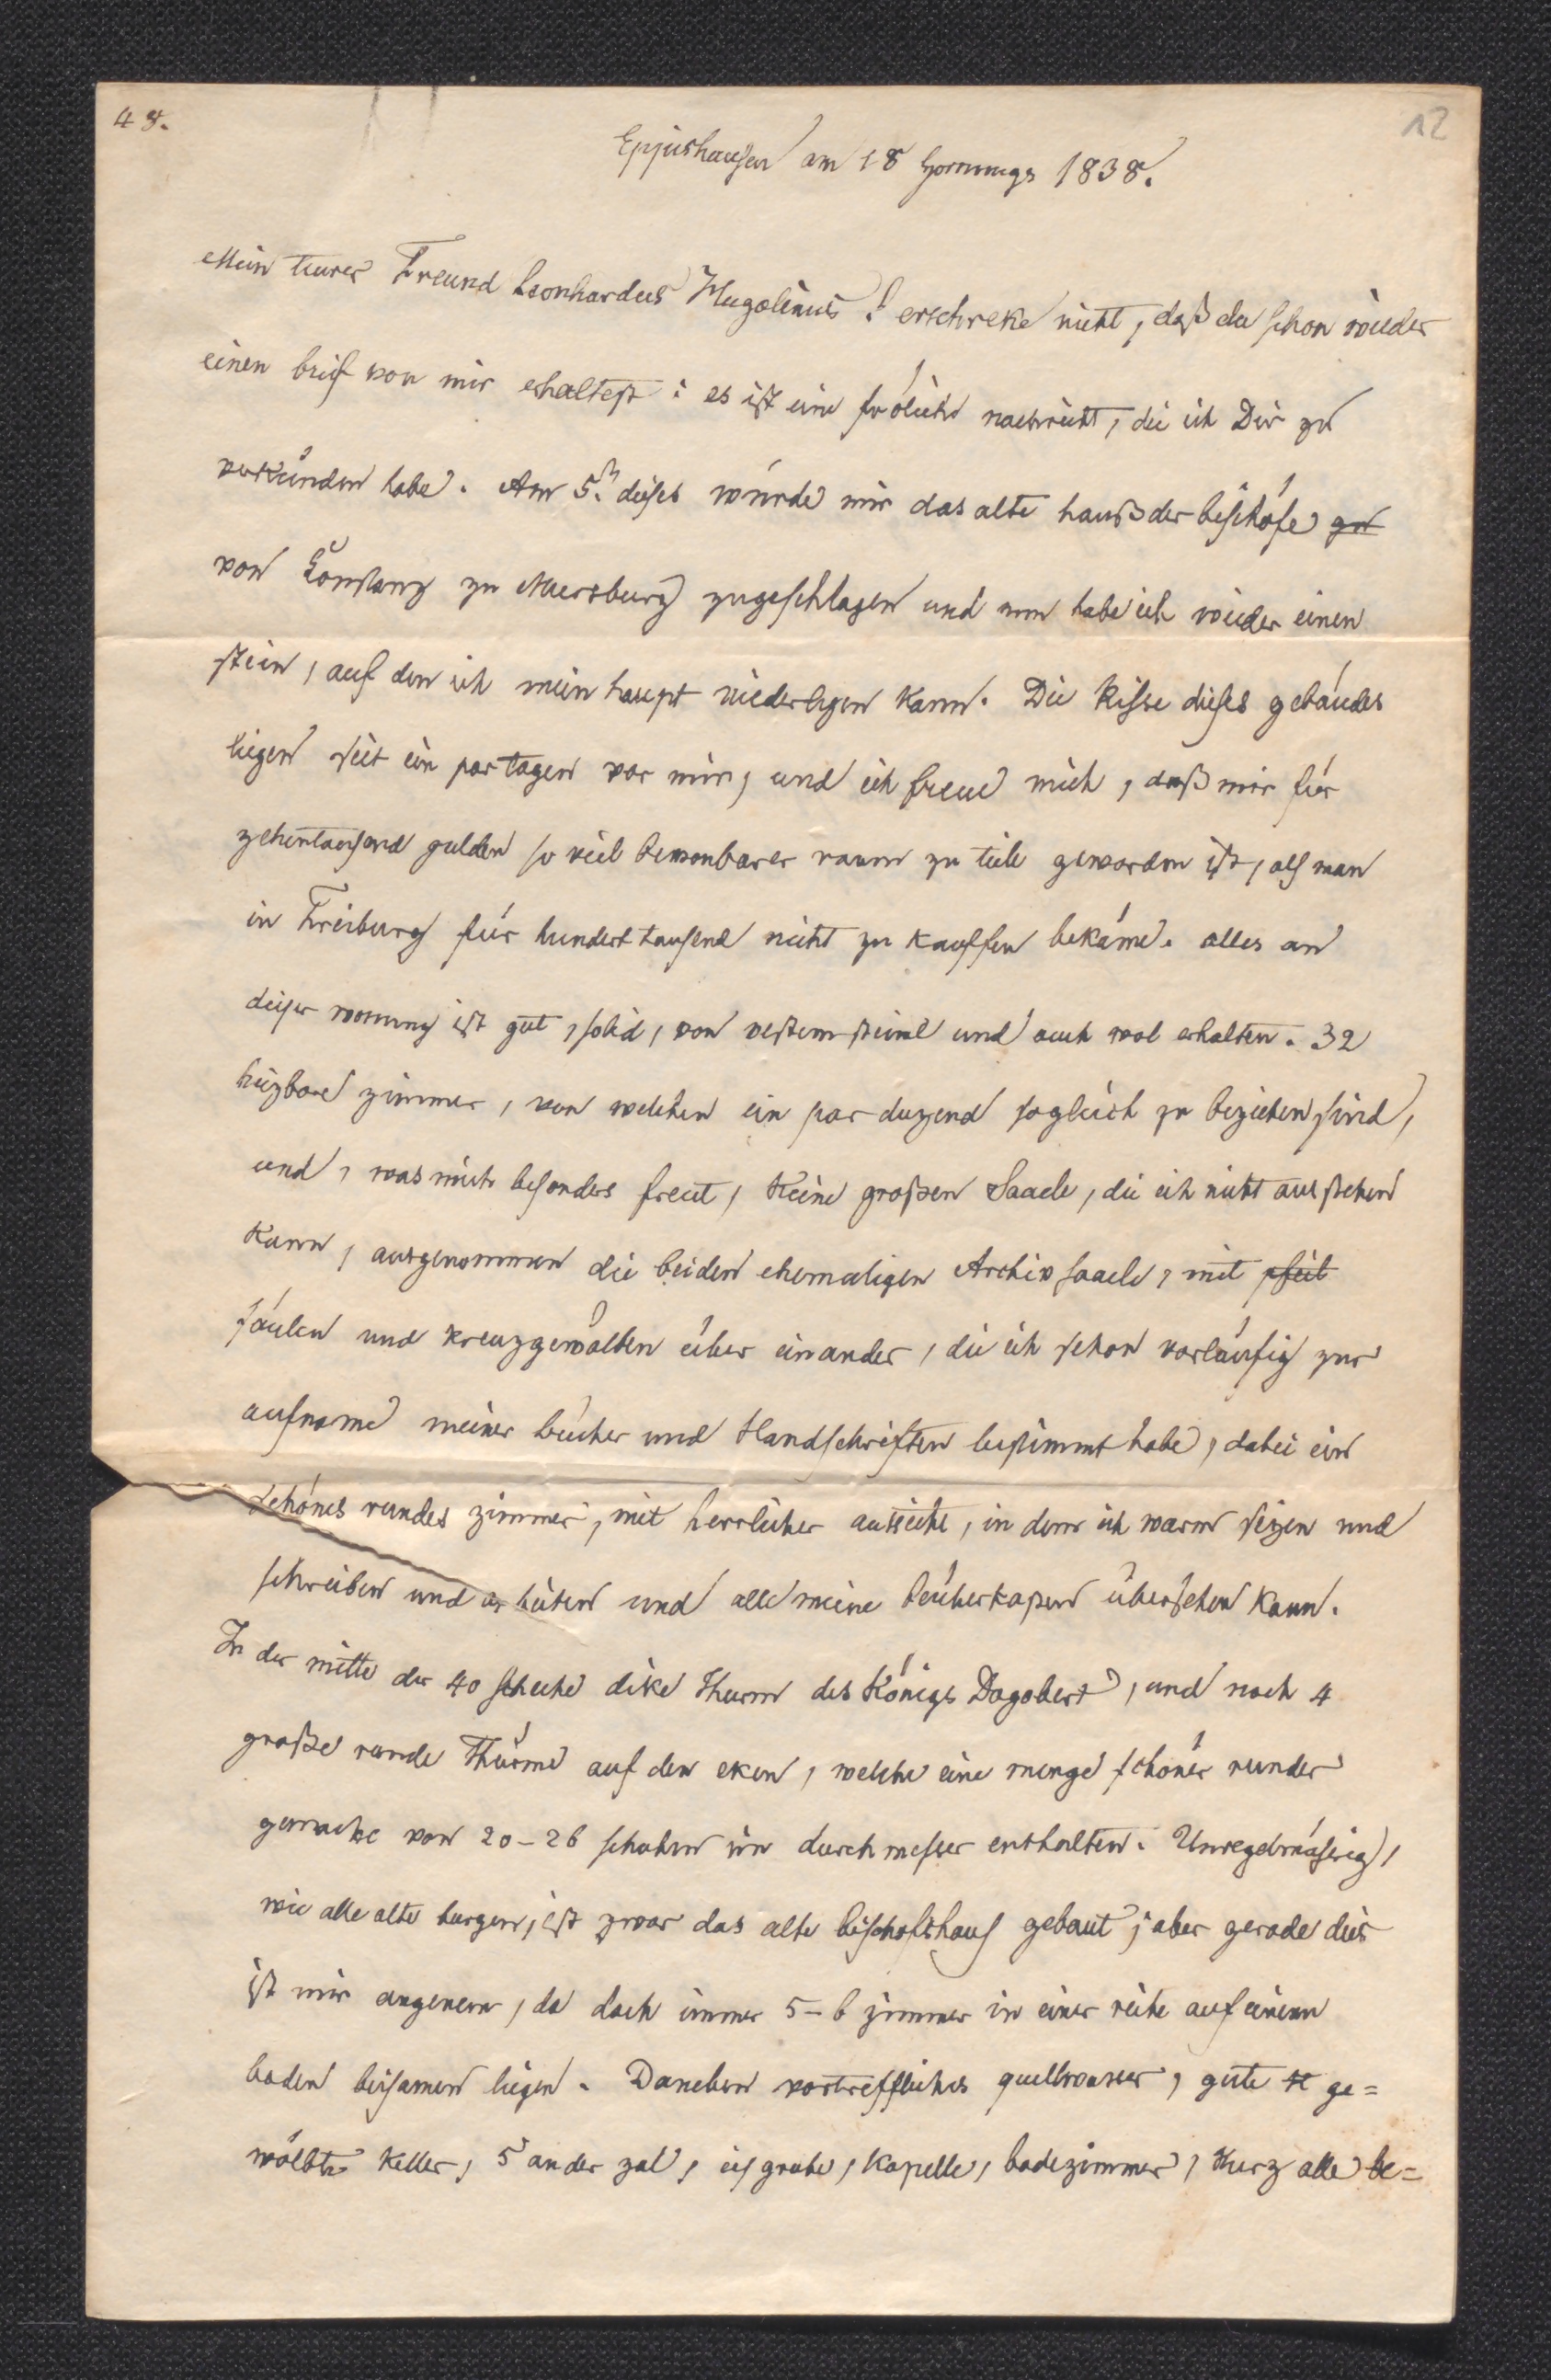 48.
12
Eppishausen am 18 Hornungs 1838.
Mein teurer Freund Leonhardus Hugolinus! erschreke nicht, daß du schon wieder
einen brief von mir erhaltest: es ist eine frölich nachricht, die ich Dir zu
verkünden habe. Am 5.n dieses wurde mir das alte hauß der bischöfe
von Constanz zu Mersburg zugeschlagen und nun habe ich wieder einen
stein, auf den ich mein haupt niederlegen kann. Die Risse dieses gebäudes
liegen seit ein par tagen vor mir, und ich freue mich, daß mir für
zehentausend gulden so viel bewonbarer raum zu teile geworden ist, als man
in Freiburg für hundert tausend nicht zu kauffen bekäme. alles an
dieser wonung ist gut, solid, von vestem steine und auch wol erhalten. 32
heizbare zimmer, von welchen ein par duzend sogleich zu beziehen sind,
und, was mich besonders freut, keine großen Saele, die ich nicht ausstehen
kann, ausgenommen die beiden ehemaligen Archiv saele, mit pfeil
säulen und kreuzgewölben über einander, die ich schon vorläufig zur
aufname meiner bücher und Handschriften bestimmt habe, dabei ein
schönes rundes zimmer, mit herrlicher aussicht, in dem ich warm sizen und
schreiben und arbeiten und alle meine bücherkasten übersehen kann.
In der mitte der 40 schuhe dike Thurm des Königs Dagobert, und noch 4
große runde Thürme auf den eken, welche eine menge schöner runder
gemache von 20-26 schuhen im durchmesser enthalten. Unregelmäsig,
wie alle alte burgen, ist zwar das alte bischofshaus gebaut; aber gerade dies
ist mir angenem, da doch immer 5-6 zimmer in einer reihe auf einem
boden beisamen liegen. Daneben vortreffliches quellwasser, gute k ge=
wölbte keller, 5 an der zal, eisgrube, kapelle, badezimmer, kurz alle be=